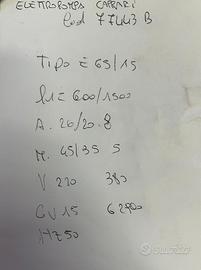 ELETTROPOMPA CAPRARI
Cod 77443 B
TIPO E 65/15
l/1 = 600/1500
A. 26/20.8
M. 45/35 S
V 220 380
CV 15 62900
HZ 50
SUBITO